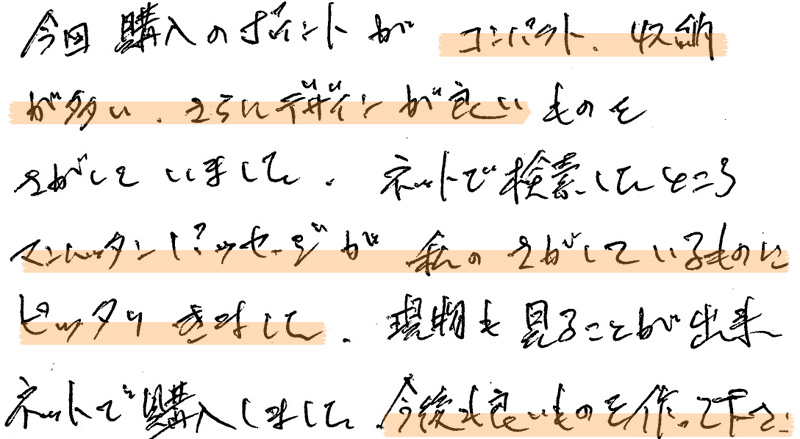 今回購入のポイントが コンパクト、収納
が多い、さらにデザインが良いものを
さがしていました。ネットで検索したところ
マンハッタンパッセージが私のさがしているものに
ピッタリきました。現物も見ることが出来
ネットで購入しました。今後も良いものを作って下さい